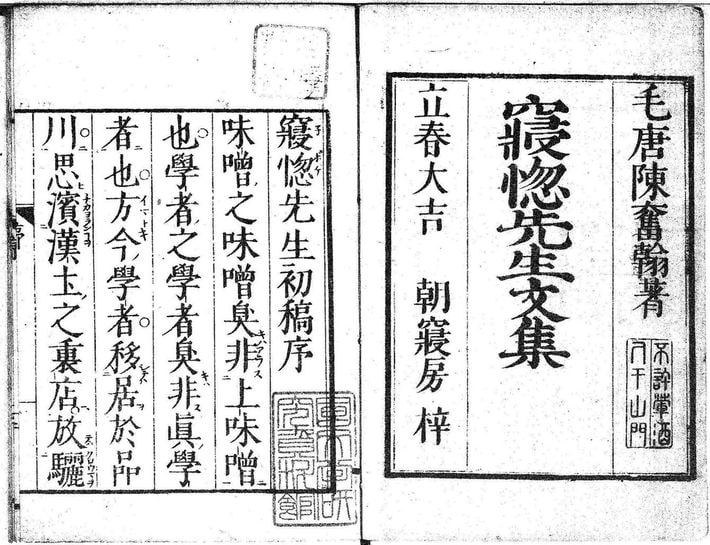 毛唐陳奮翰著
不許葷酒
入于山門
寢惚先生文集
立春大吉　朝寢房 梓
寢惚先生初稿序
味噌之味噌臭非上味噌
也學者之學者臭非眞學
者也方今學者移居於品
川思濱漢土之裏店放驪